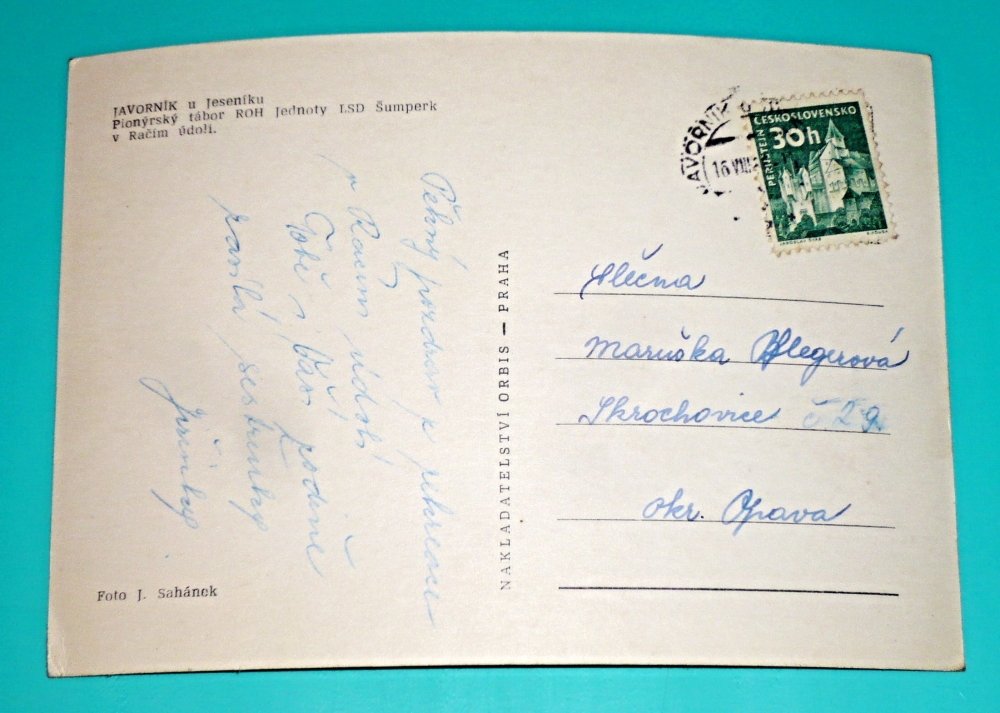 JAVORNÍK u Jeseníku
Pionýrský tábor ROH Jednoty LSD Šumperk
v Račím údolí.
Pěkný pozdrav z rekreace
v Račím údolí
Tobě i Vaší rodině
zasílá sestřenka
Foto J. Sahánek
NAKLADATELSTVÍ ORBIS — PRAHA
JAVORNÍK
16 VIII
ČESKOSLOVENSKO
30h
PERNŠTEJN
Slečna
Maruška
Skrochovice č 29
okr. Opava